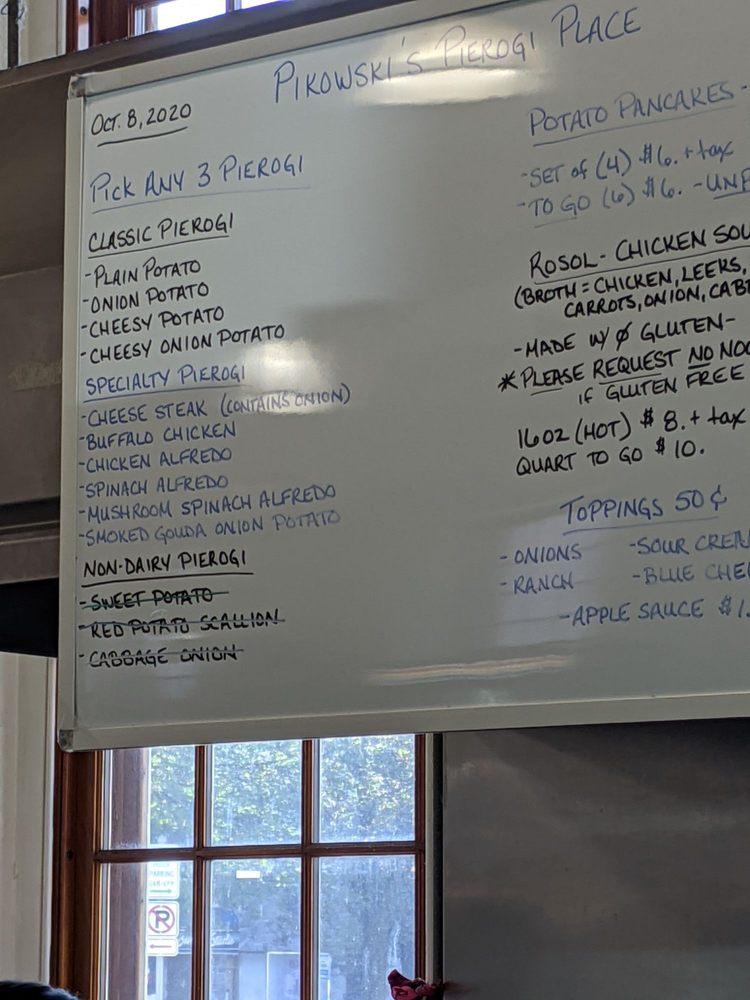 PIKOWSKI'S PIEROGI PLACE
OCT. 8, 2020
PICK ANY 3 PIEROGI
CLASSIC PIEROGI
-PLAIN POTATO
-ONION POTATO
-CHEESY POTATO
-CHEESY ONION POTATO
SPECIALTY PIEROGI
-CHEESE STEAK (CONTAINS ONION)
-BUFFALO CHICKEN
-CHICKEN ALFREDO
-SPINACH ALFREDO
-MUSHROOM SPINACH ALFREDO
-SMOKED GOUDA ONION POTATO
NON-DAIRY PIEROGI
-SWEET POTATO
-RED POTATO SCALLION
-CABBAGE ONION
POTATO PANCAKES-
-SET of (4) $6. + tax
-TO GO (6) $6. -
ROSOL- CHICKEN
(BROTH = CHICKEN, LEEKS,
CARROTS, ONION,
-MADE W/ Ø GLUTEN-
*PLEASE REQUEST NO
IF GLUTEN FREE
16OZ (HOT) $8. + tax
QUART TO GO $10.
TOPPINGS 50¢
-ONIONS -SOUR
-RANCH -BLUE
-APPLE SAUCE
PARKING